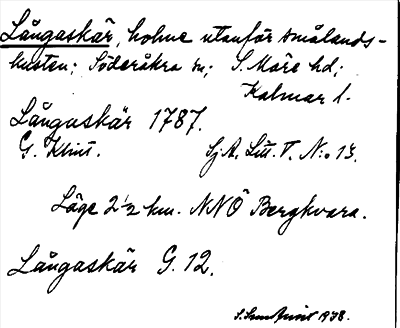 Långaskär, holme utanför smålands-
kusten; Söderåkra sn; S. Möre hd;
Kalmar l.
Långaskär 1787.
G. Klint. Sj.A. Litt. V. N:o 13.
Läge 2 1/2 km. NNÖ Bergkvara.
Långaskär G. 12.
1938.